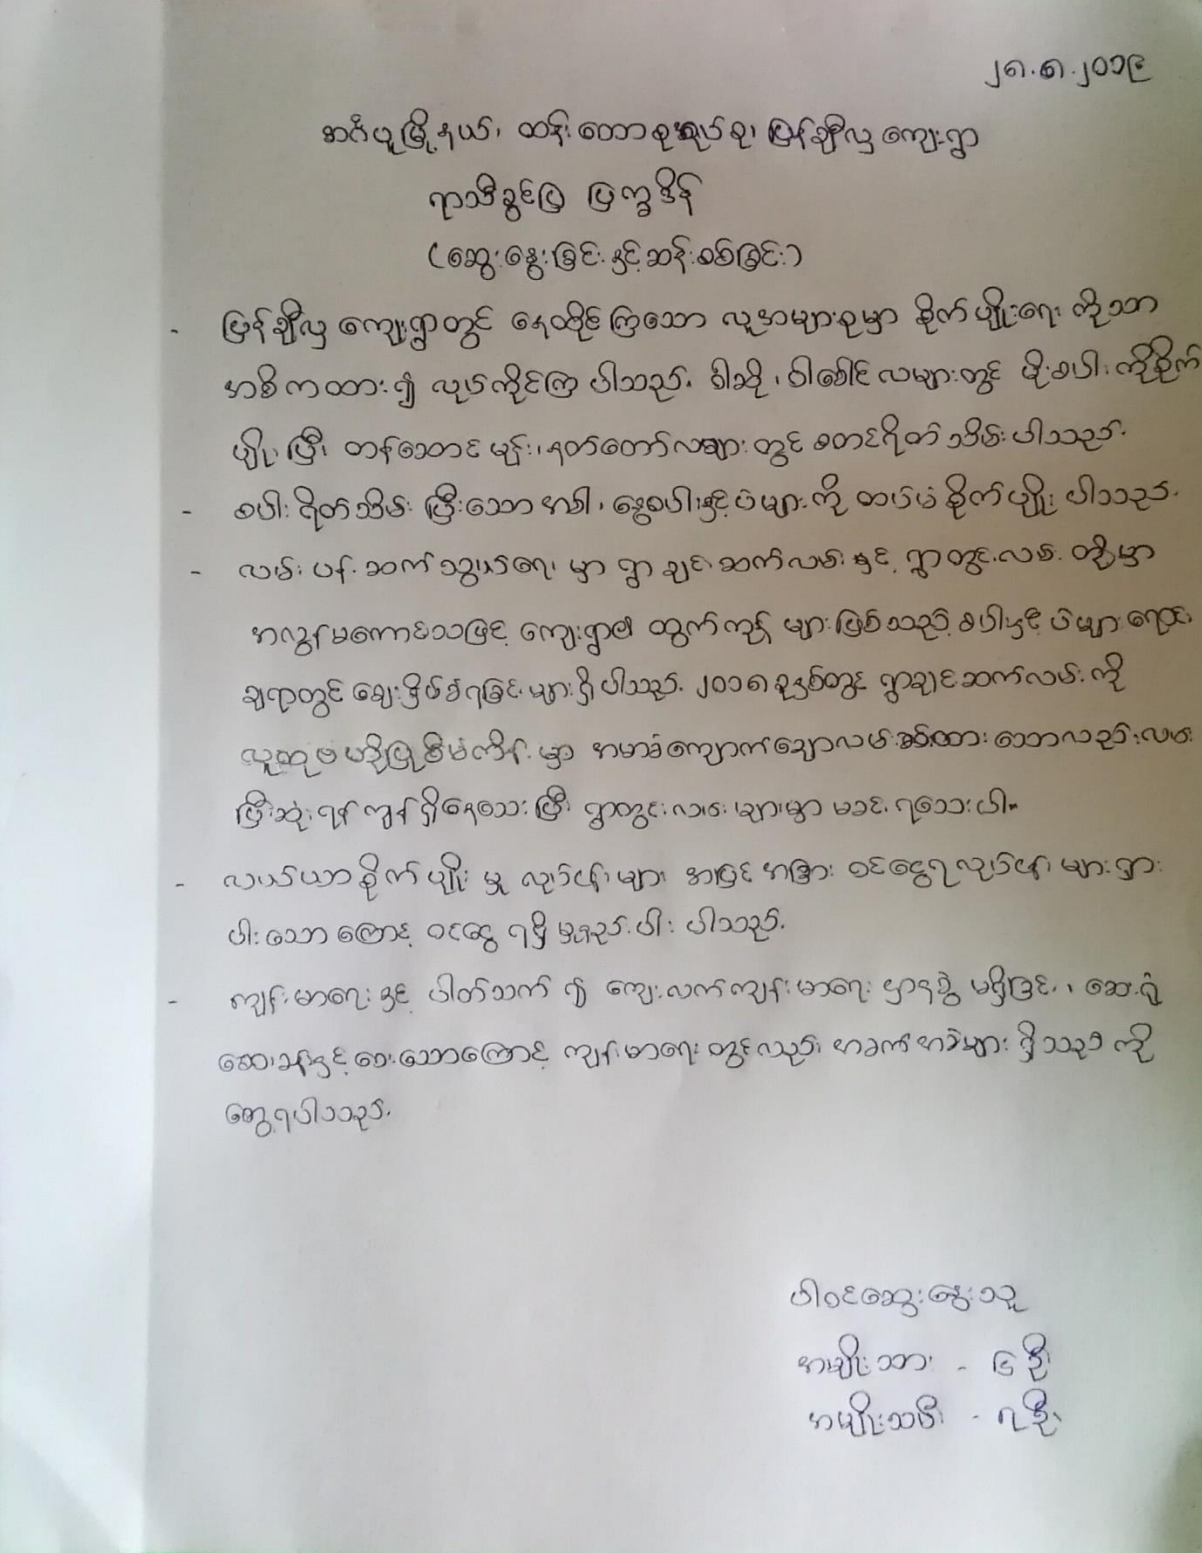 ၂၈.၈.၂၀၁၉
အင်္ဂပူမြို့နယ်၊ ထန်းတောစုအုပ်စု၊ မြန်ချီလှကျေးရွာ
ရာသီခွင်ပြ ပြက္ခဒိန်
(ဆွေးနွေးခြင်းနှင့်ဆန်းစစ်ခြင်း)
- မြန်ချီလှ ကျေးရွာတွင် နေထိုင်ကြသော လူအများစုမှာ စိုက်ပျိုးရေး ကိုသာ
အဓိကထား၍ လုပ်ကိုင်ကြ ပါသည်။ ဝါဆို၊ ဝါခေါင် လများတွင် မိုးစပါး ကိုစိုက်
ပျိုးပြီး တန်ဆောင်မုန်း၊ နတ်တော်လများ တွင် စတင်ရိတ်သိမ်းပါသည်။
- စပါး ရိတ်သိမ်း ပြီးသောအခါ၊ နွေစပါးနှင့်ပဲများကို ထပ်မံစိုက်ပျိုး ပါသည်။
- လမ်းပန်းဆက်သွယ်ရေး မှာ ရွာချင်းဆက်လမ်းနှင့် ရွာတွင်းလမ်း တို့မှာ
အလွန်မကောင်းသဖြင့် ကျေးရွာ၏ ထွက်ကုန် များဖြစ်သည့် စပါးနှင့် ပဲများရောင်း
ချရာတွင် ဈေးနှိမ်ခံရခြင်းများရှိပါသည်။ ၂၀၁၈ခုနှစ်တွင် ရွာချင်းဆက်လမ်းကို
လူထုဗဟိုပြုစီမံကိန်းမှာ အမာခံကျောက်ချောလမ်းခင်းထားသော်လည်းလမ်း
ပြီးဆုံးရန် ကျန်ရှိနေသေးပြီး ရွာတွင်းလမ်းများမှာ မခင်းရသေးပါ။
- လယ်ယာစိုက်ပျိုးမှု လုပ်ငန်းများ အပြင်အခြား ဝင်ငွေရလုပ်ငန်းများရှား
ပါးသောကြောင့် ဝင်ငွေ ရရှိမှုနည်းပါး ပါသည်။
- ကျန်းမာရေးနှင့် ပါတ်သက်၍ ကျေးလက်ကျန်းမာရေး ဌာနခွဲ မရှိခြင်း၊ ဆေးရုံ
ဆေးခန်းနှင့်ဝေးသောကြောင့် ကျန်းမာရေးတွင်လည်း အခက်အခဲများ ရှိသည်ကို
တွေ့ရပါသည်။
ပါဝင်ဆွေးနွေးသူ
အမျိုးသား - ၆ဦး
အမျိုးသမီး - ၇ဦး